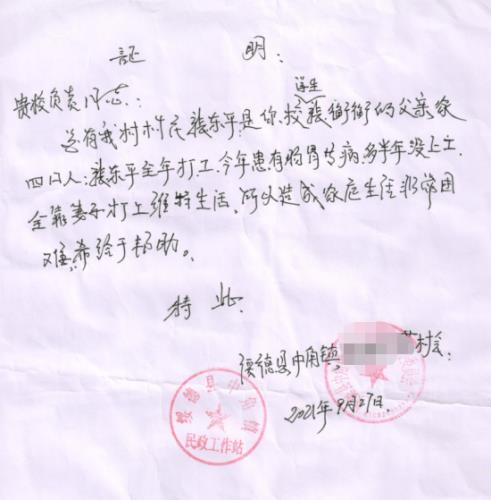 证 明:
贵校负责同志:
兹有我村村民张东平是你校学生张衡衡的父亲家
四口人,张东平全年打工,今年患有肠胃病,多半年没上工.
全靠妻子打工维持生活,所以造成家庭生活非常困
难,希给于帮助。
特此.
绥德县中角镇 村委
2021年9月27日.
绥德县中角镇
民政工作站